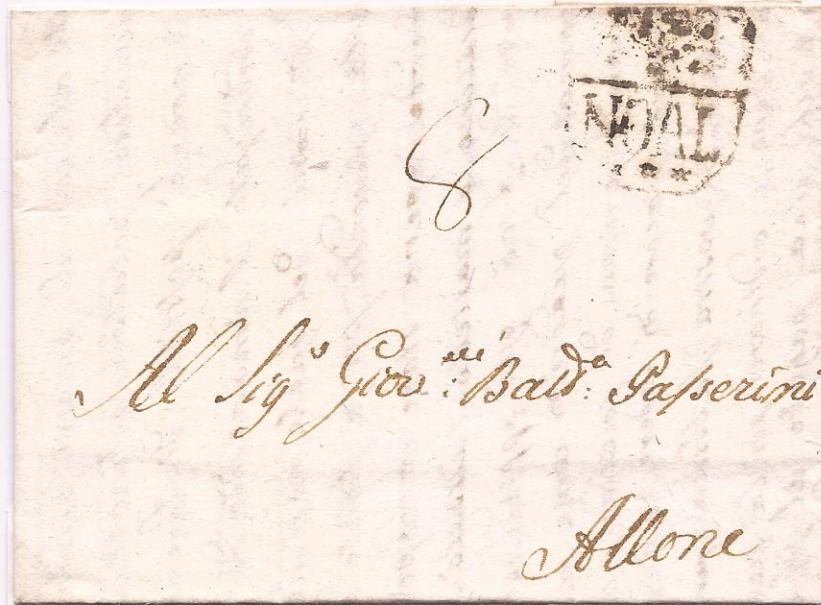 NOAL
***
8
Al Sig.ʳ Giov.ⁿⁱ: Bald.ᵃ: Paſserini
Allone